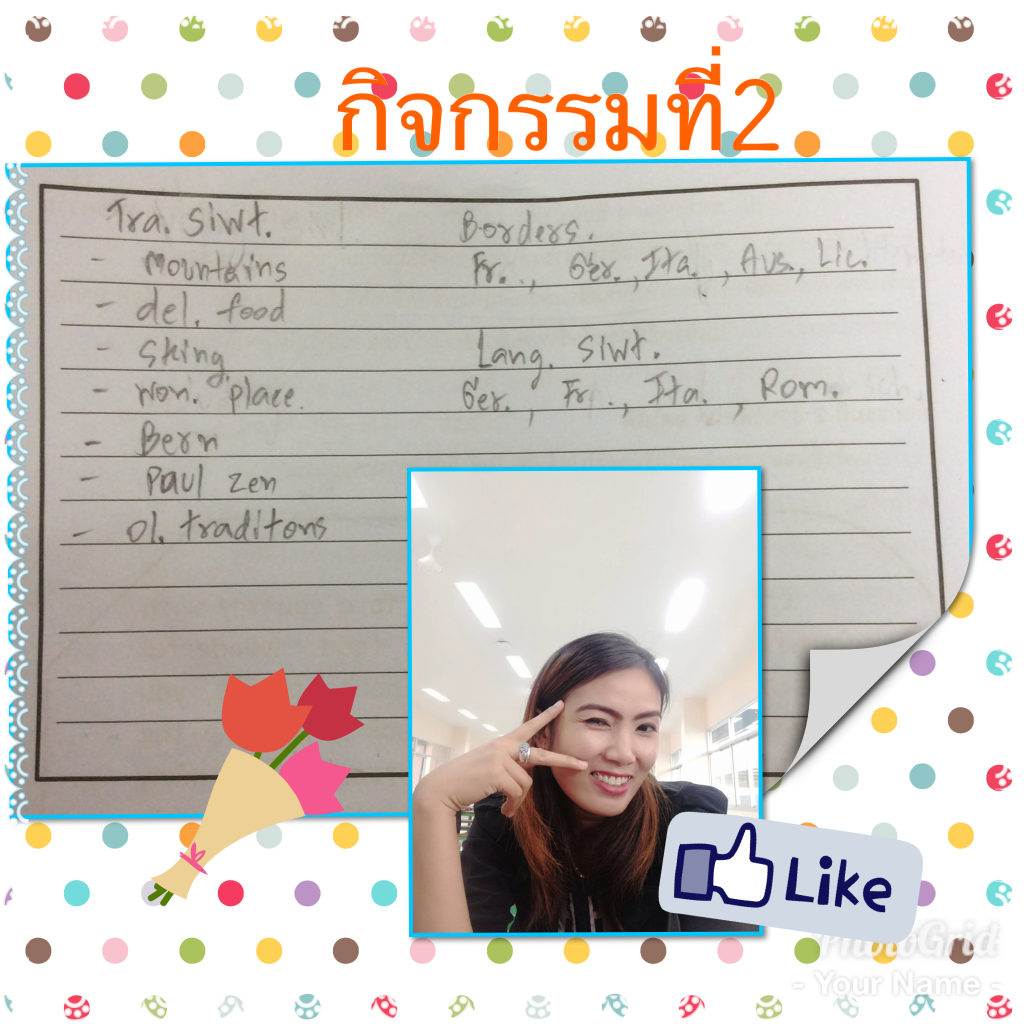 กิจกรรมที่2
Tra. Siwt.
- Mountains
- del. food
- Sking
- Won. place.
- Bern
- Paul Zen
- Ol. traditons
Borders.
Fr. , Ger. , Ita. , Aus., Lic.
Lang. Siwt.
Ger. , Fr. , Ita. , Rom.
Like
PhotoGrid
- Your Name -